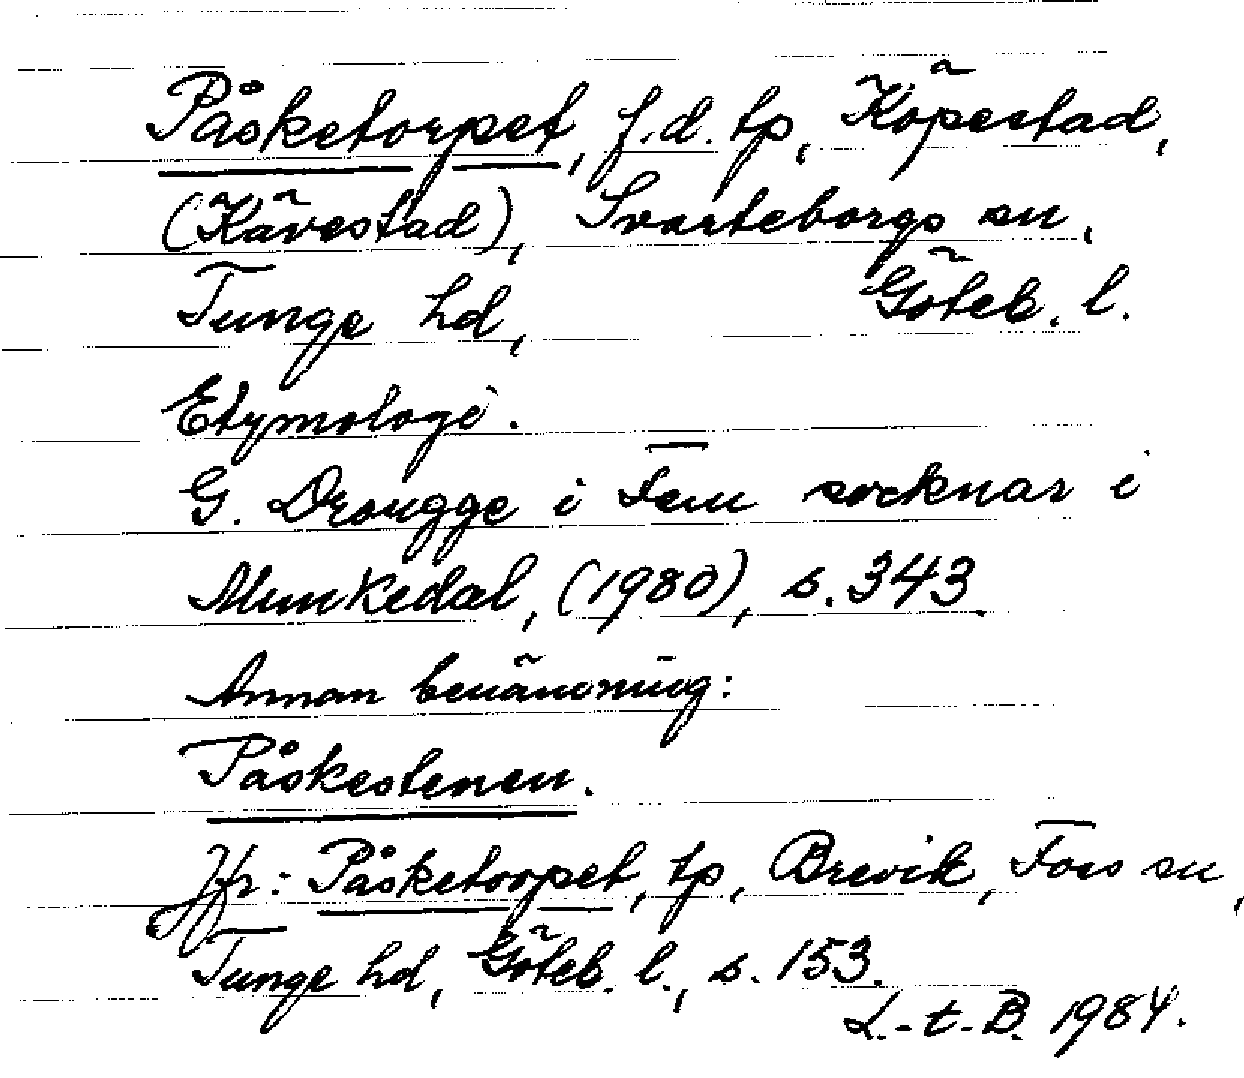 Påsketorpet, f.d. tp, Köpestad,
(Kävestad), Svarteborgs sn,
Tunge hd, Göteb. l.
Etymologi.
G. Drougge i Fem socknar i
Munkedal, (1980), s. 343.
Annan benämning:
Påskestenen.
Jfr: Påsketorpet, tp, Brevik, Foss sn,
Tunge hd, Göteb. l., s. 153.
L.-t.-B. 1984.